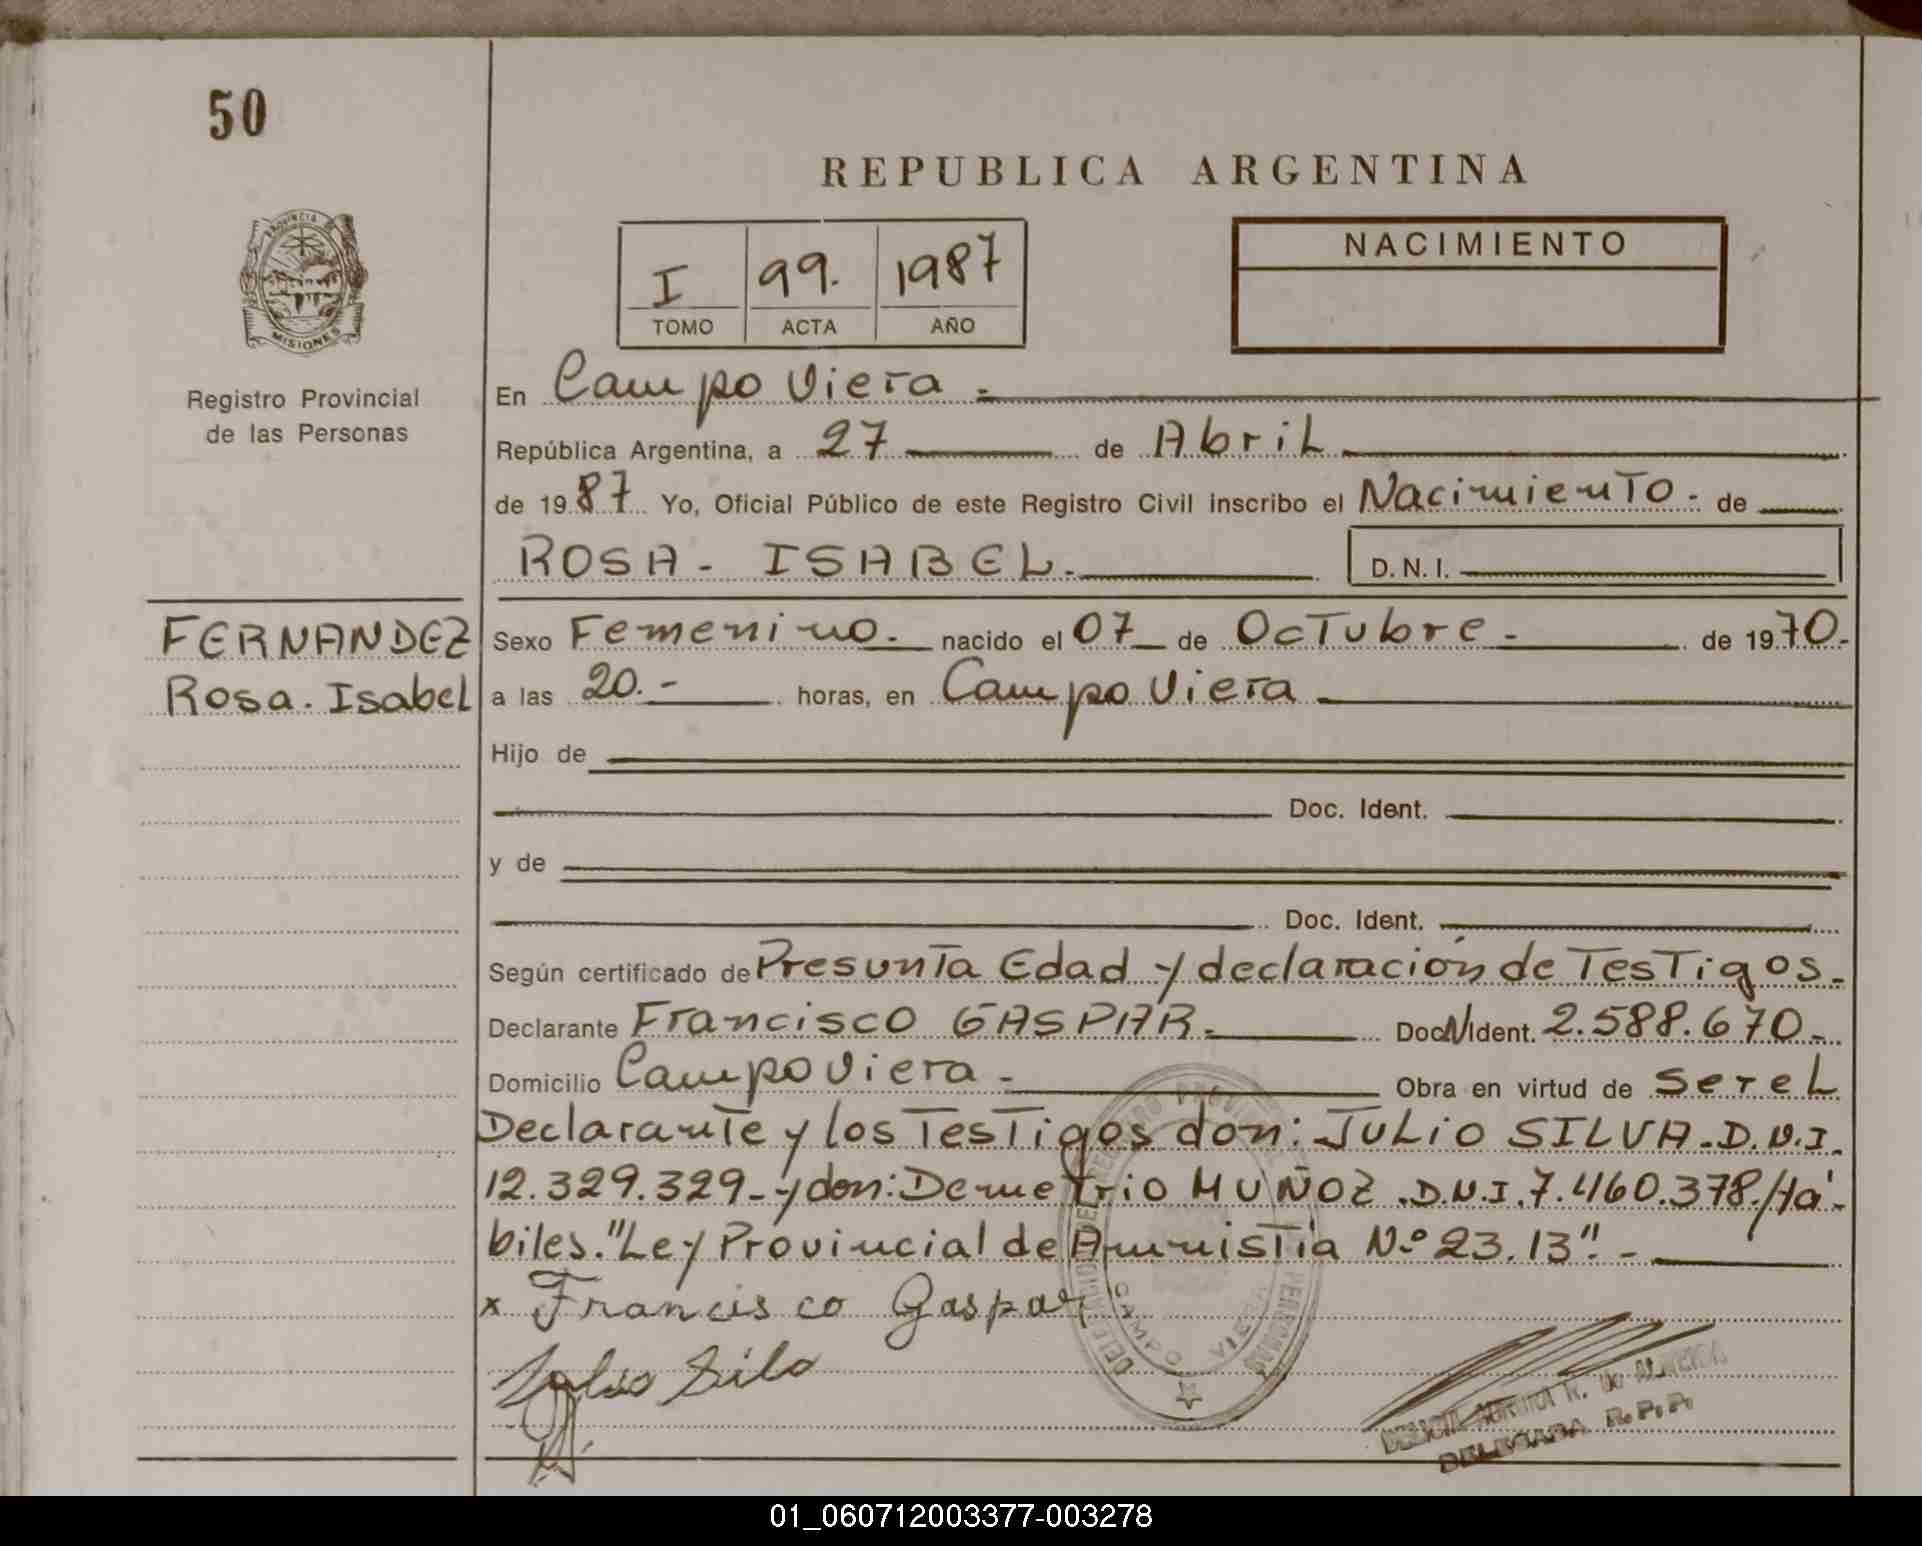 50
REPUBLICA ARGENTINA
PROVINCIA DE
MISIONES
I 99. 1987
TOMO ACTA AÑO
NACIMIENTO
Registro Provincial
de las Personas
En Campo Viera.
República Argentina, a 27 de Abril
de 1987 Yo, Oficial Público de este Registro Civil inscribo el Nacimiento. de
ROSA. ISABEL.
D. N. I.
FERNANDEZ
Rosa. Isabel
Sexo Femenino. nacido el 07 de Octubre. de 1970.
a las 20.- horas, en Campo Viera
Hijo de
Doc. Ident.
y de
Doc. Ident.
Según certificado de Presunta Edad y declaración de Testigos.
Declarante Francisco GASPAR. Doc. Ident. 2.588.670.
Domicilio Campo Viera - Obra en virtud de ser el
Declarante y los Testigos don: JULIO SILVA. D.N.I.
12.329.329 - y don: Demetrio MUÑOZ. D.N.I. 7.460.378./Há-
biles. "Ley Provincial de Amnistía N.º 23.13". -
x Francisco Gaspar
CAMPO VIERA
DELEGADA R.P.P.
01_060712003377-003278